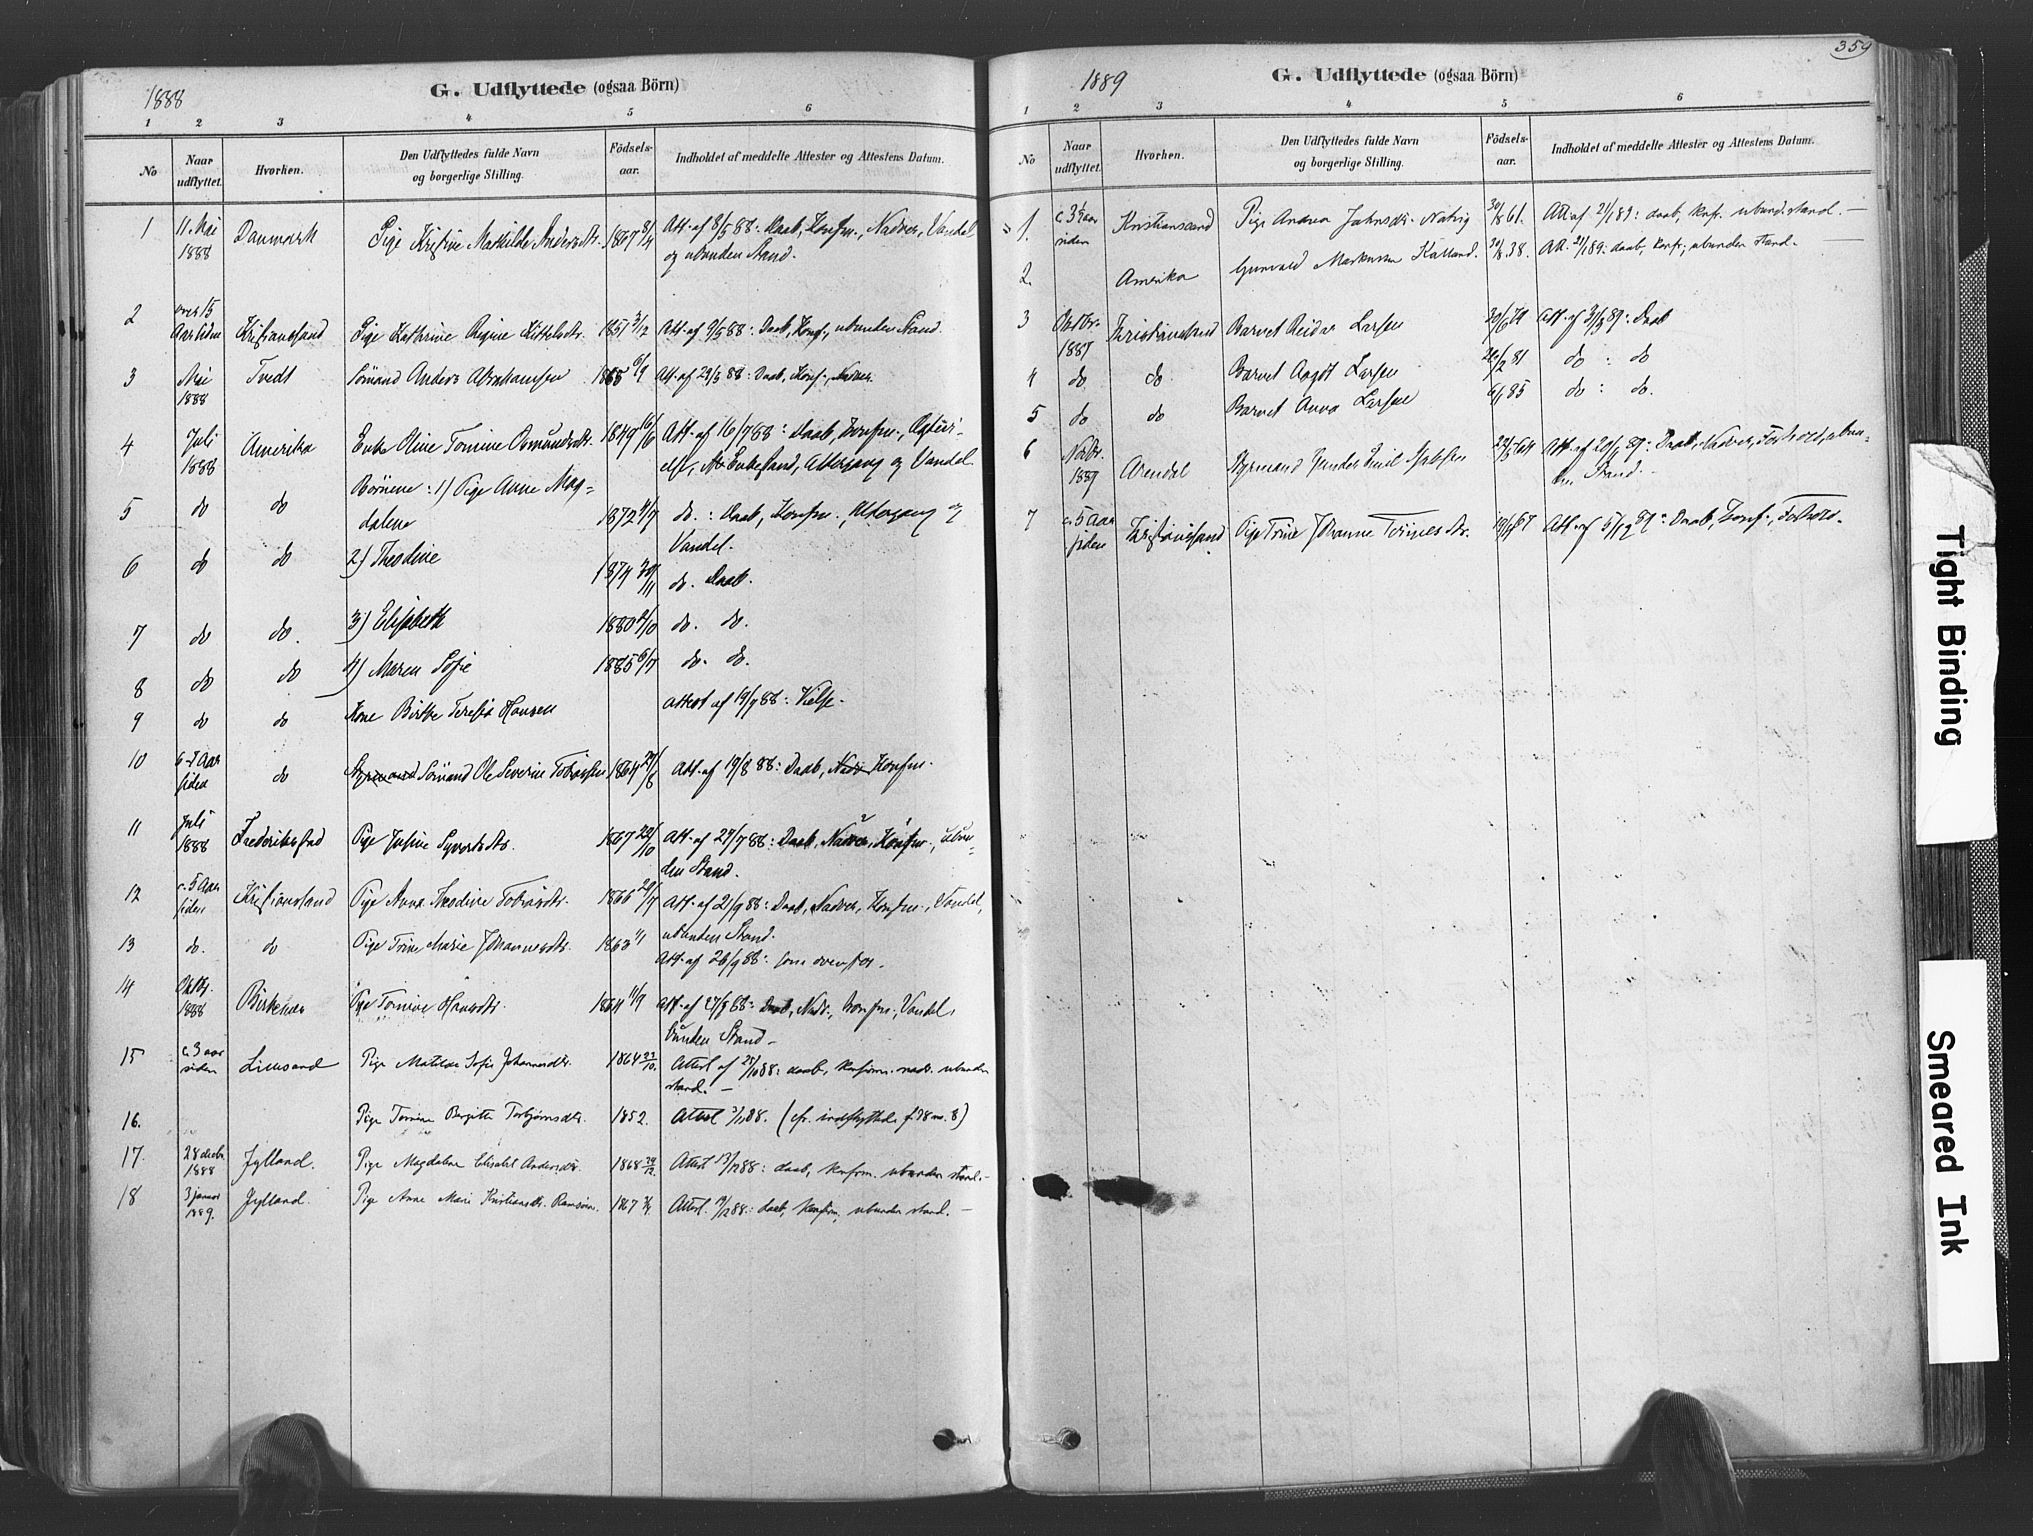 1888
G. Udflyttede (ogsaa Börn)
1 2 3 4 5 6
No Naar udflyttet. Hvorhen. Den Udflyttedes fulde Navn og borgerlige Stilling. Födsels-aar. Indholdet af meddelte Attester og Attestens Datum.
1 11 Mai 1888 Danmark Pige Kristine Mathilde Andersdtr. 1867 8/4 Att. af 8/5 88: Daab, Konfm., Nadver, Vandel
og ubunden Stand.
2 over 15 Aar siden Kristianssand Pige Kathrine Regine Kittelsdtr. 1851 3/12 Att. af 9/5 88: Daab, Konf., ubunden Stand.
3 Mai 1888 Tvedt Sömand Anders Abrahamsen 1868 6/9 Att. af 29/5 88: Daab, Konf., Nadver.
4 Juli 1888 Amerika Enke Oline Tomine Osmundsdtr. 1849 16/6 Att. af 16/7 88: Daab, Konfm.,
Enkestand, Altergang og Vandel.
Börnene: 1) Pige Anne Mag=
5 do do dalene 1872 4/7 do.: Daab, Konfm., Altergang og
Vandel.
6 do do 2) Theodine 1874 30/11 do. Daab.
7 do do. 3) Elisabeth 1880 2/10 do. do.
8 do do 4) Maren Sofie 1885 6/7 do. do.
9 do do Kone Birthe Teresia Hansen attest af 19/9 88: Vielse.
10 6-7 Aar siden do Styrmand Sömand Ole Severin Tobiassen 1864 29/8 Att. af 19/8 88: Daab, Nadv. Konfm.
11 Juli 1888 Frederikstad Pige Josine Syvertsdtr. 1867 22/10 Att. af 27/7 88: Daab, Nadver, Konfm., ubun-
den Stand.
12 c. 5 Aar siden Kristianssand Pige Anna Theodine Tobiasdtr. 1866 29/7 Att. af 21/9 88: Daab, Nadver, Konfm., Vandel,
ubunden Stand.
13 do. do Pige Trine Marie Johannesdtr. 1863 1/1 Att. af 26/9 88: som ovenfor.
14 Oktbr. 1888 Birkenæs Pige Tomine Hansdtr. 1864 11/9 Att. af 27/9 88: Daab, Nadv., Konfm., Vandel,
bunden Stand.
15 c. 3 aar siden Lillesand Pige Matilde Sofie Johannesdtr. 1864 23/10. Attest af 25/10 88: daab, konfirm. nadv. ubunden
stand. —
16. Pige Tomine Birgitte Torbjørnsdtr. 1852. Attest 3/11 88. (cfr. indflyttede f. 78 no. 8)
17. 28 decbr 1888 Jylland. Pige Magdalene Elisabet Andersdtr. 1868 29/12 Attest 13/12 88: daab, konfirm. ubunden stand. –
18 3 januar 1889. Jylland. Pige Anne Marie Kristiansdtr. 1867 Attest 19/12 88: daab, konfirm, ubunden stand. —
359
1889
G. Udflyttede (ogsaa Börn)
1 2 3 4 5 6
No Naar udflyttet. Hvorhen. Den Udflyttedes fulde Navn og borgerlige Stilling. Födsels-aar. Indholdet af meddelte Attester og Attestens Datum.
1. c. 3½ aar siden Kristianssand Pige Andrea Jahnsdtr. Natvig 30/8 61. Att. af 2/1 89: daab, konf. ubund. stand. —
2. Amerika Gunvald Markussen Kalland. 30/8. 38. Att. 2/1 89: daab, konf., ubunden stand. —
3 Oktbr. 1887 Kristianssand Barnet Reidar Larsen Att. af 3/3 89: Daab
4 do do Barnet Aagot Larsen 26/2 81 do : do
5 do do Barnet Anna Larsen 6/1 85 do : do.
6 Novbr. 1889 Arendal Styrmand Emil 22/5 64 Att. af Daab, Nadver, Forhold, ubun-
den Stand. —
7 c. 5 Aar siden Kristianssand Pige Trine Johanne Tönnesdtr. 67 Att. af 5/12 89: Daab, Konf., Forhold.
Tight Binding
Smeared Ink